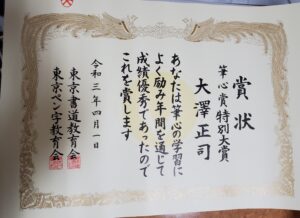 賞状
筆心賞特別大賞
大澤正司
あなたは筆心の学習に
よく励み年間を通じて
成績優秀であったので
これを賞します
令和三年四月一日
東京書道教育会
東京ペン字教育会